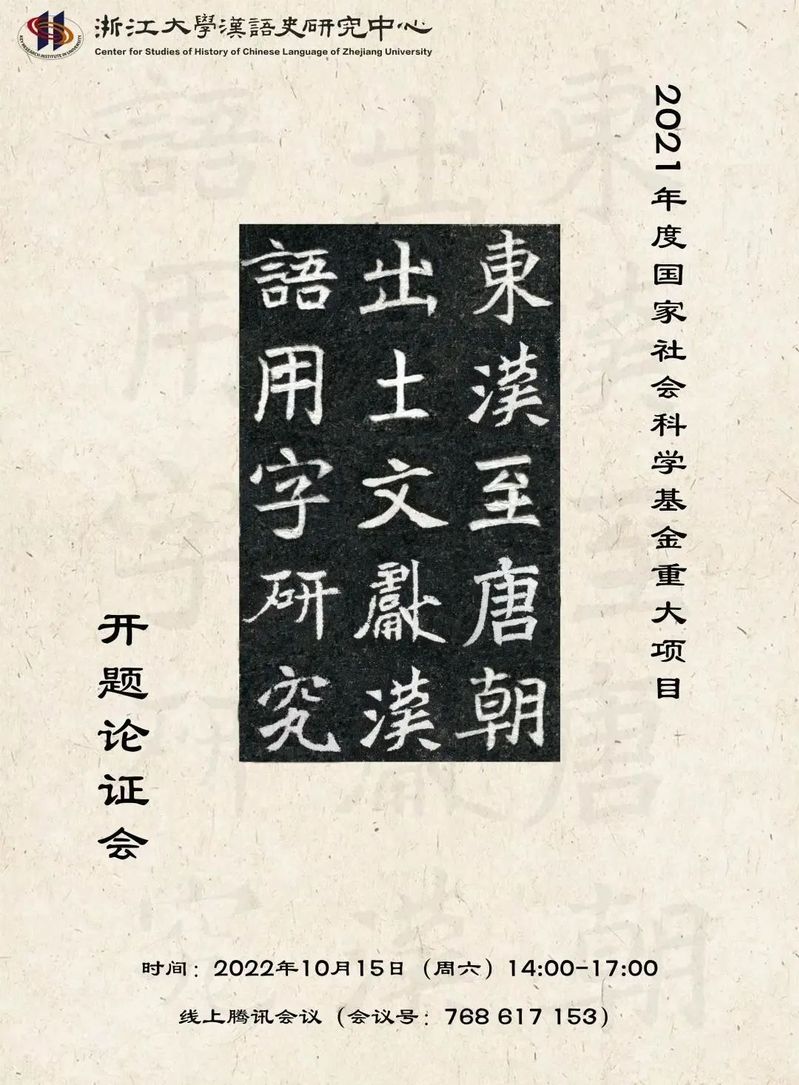 浙江大學漢語史研究中心
Center for Studies of History of Chinese Language of Zhejiang University
2021年度国家社会科学基金重大项目
東漢至唐朝
出土文獻漢
語用字研究
开题论证会
时间：2022年10月15日（周六）14:00-17:00
线上腾讯会议（会议号：768 617 153）